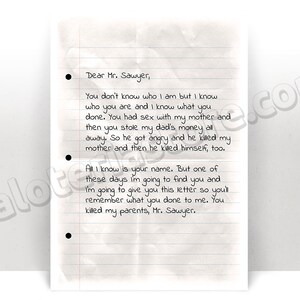 "Dear Mr. Sawyer,
You don't know who I am but I know
who you are and I know what you
done. You had sex with my mother and
then you stole my dad's money all
away. So he got angry and he killed my
mother and then he killed himself, too.
All I know is your name. But one of
these days I'm going to find you and
I'm going to give you this letter so you'll
remember what you done to me. You
killed my parents, Mr. Sawyer.